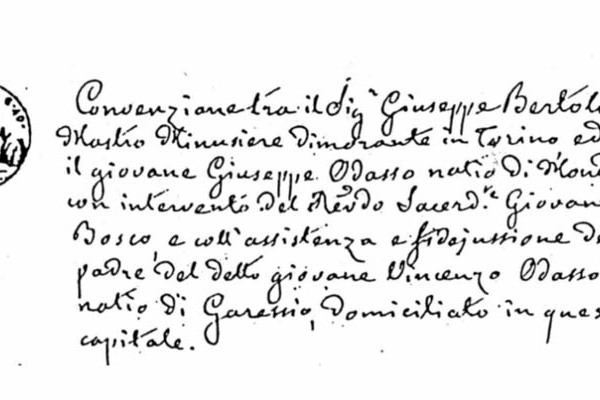 Convenzione tra il Sig.r Giuseppe Bertol
Mastro Minusiere dimorante in Torino ed
il giovane Giuseppe Odasso natio di Mond
con intervento del Revdo Sacerd.te Giovan
Bosco, e coll'assistenza e fidejussione d
padre del detto giovane Vincenzo Odasso
natio di Garessio, domiciliato in ques
capitale.